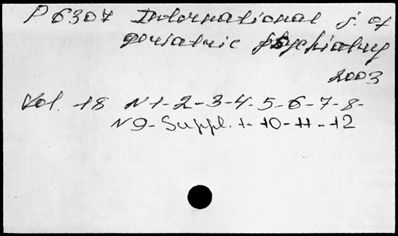 P 6307 International j. of
geriatric psychiatry
2003
Vol. 18 N1-2-3-4-5-6-7-8-
N9-Suppl.1-10-11-12